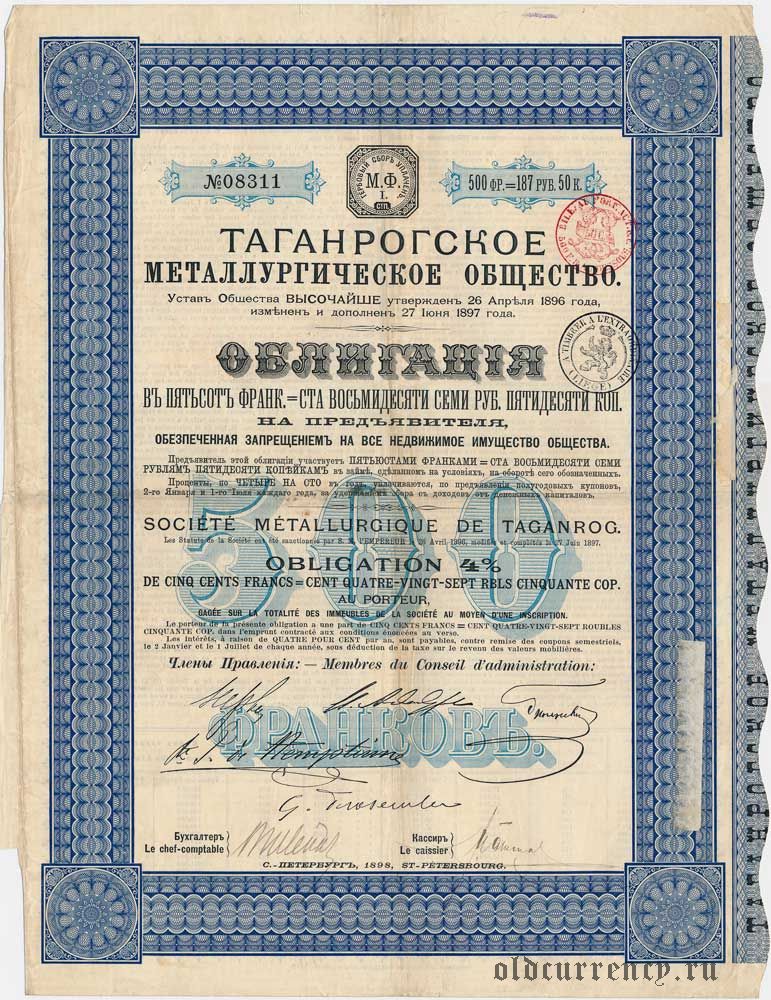 №08311
ГЕРБОВЫЙ СБОРЪ УПЛАЧЕНЪ
М.Ф.
I.
СТП.
500 ФР.=187 РУБ. 50 К.
ТАГАНРОГСКОЕ
МЕТАЛЛУРГИЧЕСКОЕ ОБЩЕСТВО.
Уставъ Общества ВЫСОЧАЙШЕ утвержденъ 26 Апрѣля 1896 года,
измѣненъ и дополненъ 27 Іюня 1897 года.
A TIMBRER A L'EXTRAORDINAIRE
(LIEGE)
ОБЛИГАЦІЯ
ВЪ ПЯТЬСОТЪ ФРАНК.=СТА ВОСЬМИДЕСЯТИ СЕМИ РУБ. ПЯТИДЕСЯТИ КОП.
НА ПРЕДЪЯВИТЕЛЯ,
ОБЕЗПЕЧЕННАЯ ЗАПРЕЩЕНІЕМЪ НА ВСЕ НЕДВИЖИМОЕ ИМУЩЕСТВО ОБЩЕСТВА.
Предъявитель этой облигаціи участвуетъ ПЯТЬЮСТАМИ ФРАНКАМИ=СТА ВОСЬМИДЕСЯТИ СЕМИ
РУБЛЯМЪ ПЯТИДЕСЯТИ КОПѢЙКАМЪ въ займѣ, сдѣланномъ на условіяхъ, на оборотѣ сего обозначенныхъ.
Проценты, по ЧЕТЫРЕ НА СТО въ годъ, уплачиваются, по предъявленіи полугодовыхъ купоновъ,
2-го Января и 1-го Іюля каждаго года, за удержаніемъ сбора съ доходовъ отъ денежныхъ капиталовъ.
500
SOCIÉTÉ MÉTALLURGIQUE DE TAGANROG.
Les Statuts de la Société ont été sanctionnés par S. M. L'EMPEREUR le 26 Avril 1896, modifiés et complétés le 27 Juin 1897.
OBLIGATION 4%
DE CINQ CENTS FRANCS=CENT QUATRE-VINGT-SEPT RBLS CINQUANTE COP.
AU PORTEUR,
GAGÉE SUR LA TOTALITÉ DES IMMEUBLES DE LA SOCIÉTÉ AU MOYEN D'UNE INSCRIPTION.
Le porteur de la présente obligation a une part de CINQ CENTS FRANCS=CENT QUATRE-VINGT-SEPT ROUBLES
CINQUANTE COP. dans l'emprunt contracté aux conditions énoncées au verso.
Les Intérêts, à raison de QUATRE POUR CENT par an, sont payables, contre remise des coupons semestriels,
le 2 Janvier et le 1 Juillet de chaque année, sous déduction de la taxe sur le revenu des valeurs mobilières.
Члены Правленія:—Membres du Conseil d'administration:
ФРАНКОВЪ.
Бухгалтеръ
Le chef-comptable
Кассиръ
Le caissier
С.-ПЕТЕРБУРГЪ, 1898, ST-PÉTERSBOURG.
ТАГАНРОГСКОЕ МЕТАЛЛУРГИЧЕСКОЕ ОБЩЕСТВО
oldcurrency.ru